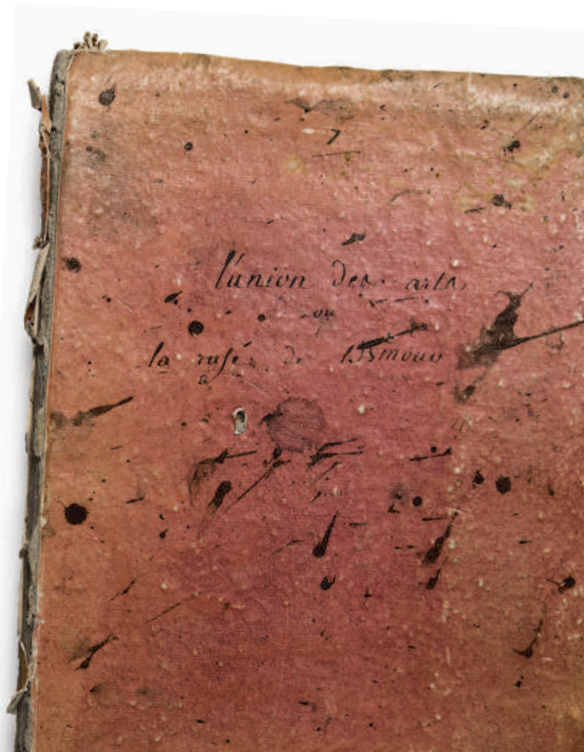 l'union des arts
ou
la ruse de l'amour